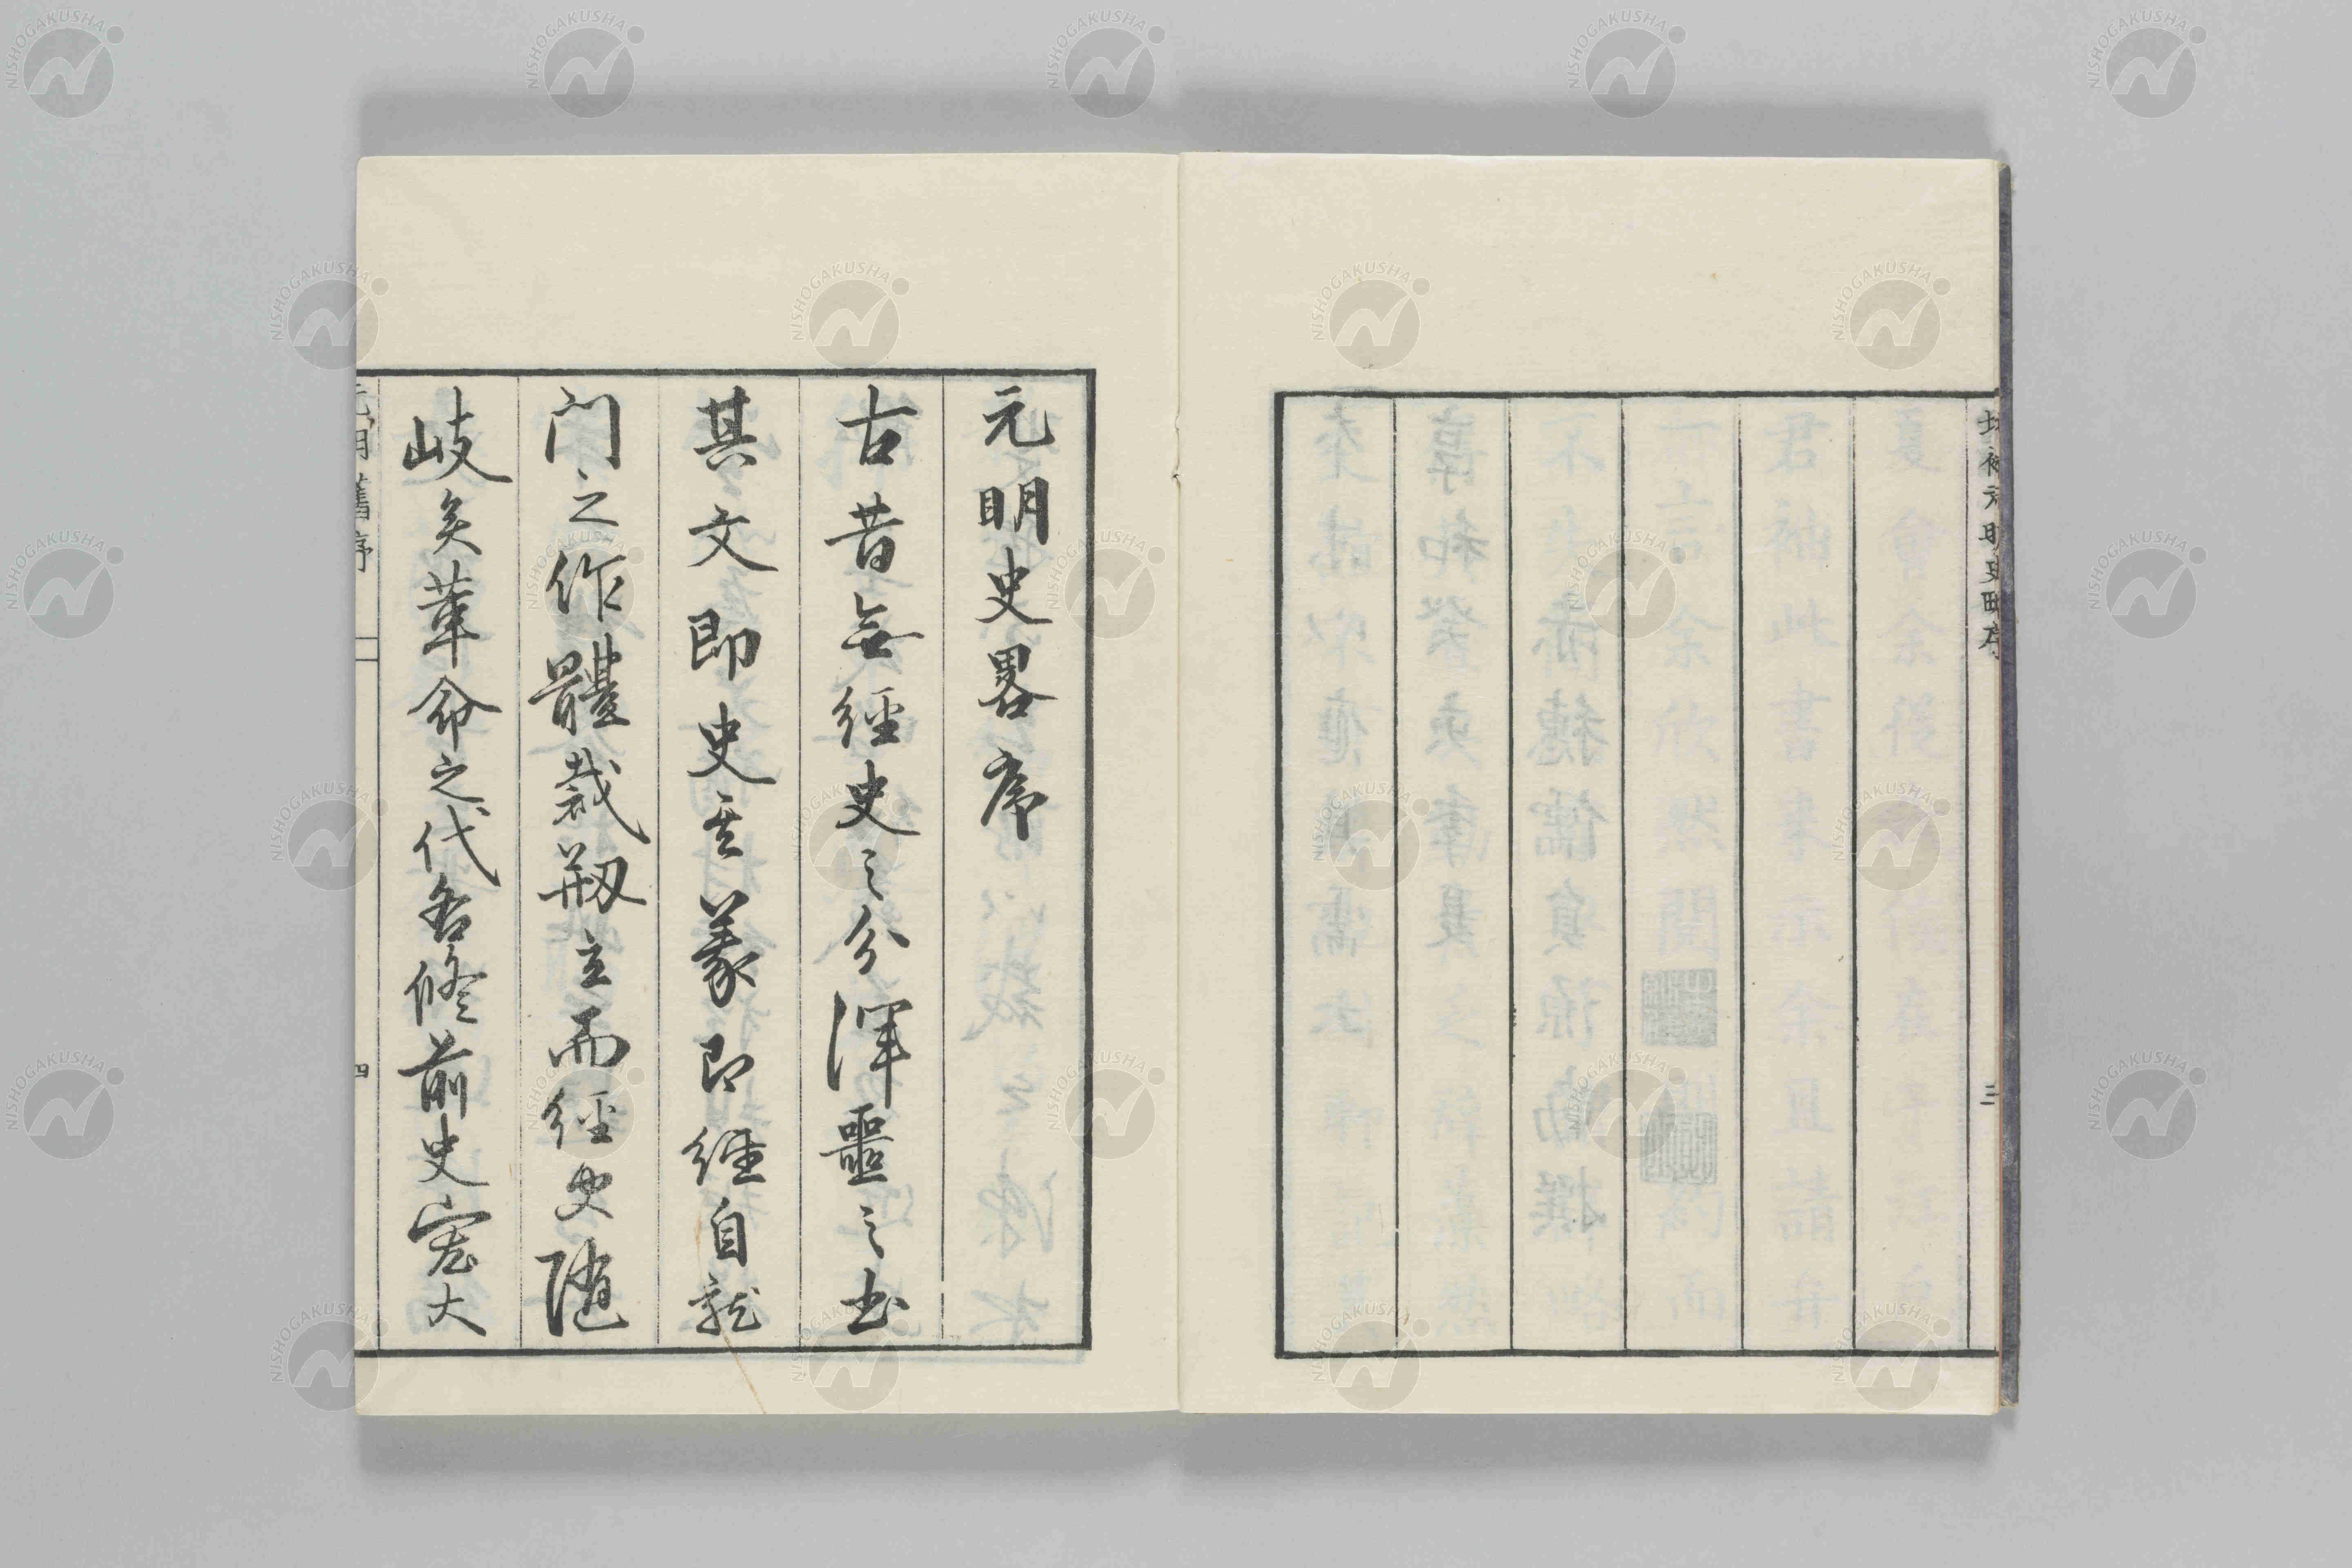 元明史畧序
古昔無經史之分渾噩之書
其文即史其義即經自龍
門之作體裁剏立而經史隨
岐矣革命之代各修前史宏大
元明舊序
四
増補元明史畧序
三
NISHOGAKUSHA